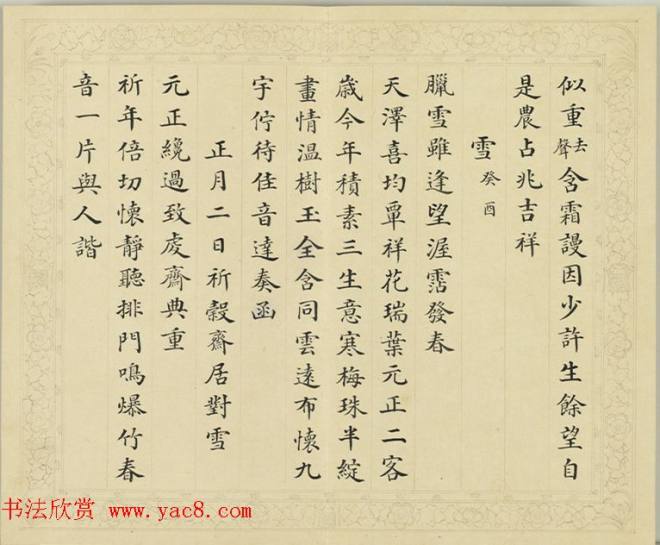 似重去聲含霜謾因少許生餘望自
是農占兆吉祥
雪癸酉
臘雪雖逢望渥霑發春
天澤喜均覃祥花瑞葉元正二客
歲今年積素三生意寒梅珠半綻
畫情溫樹玉全含同雲遠布懷九
宇佇待佳音達奏函
正月二日祈穀齋居對雪
元正纔過致虔齋典重
祈年倍切懷靜聽排門鳴爆竹春
音一片與人諧
书法欣赏 www.yac8.com